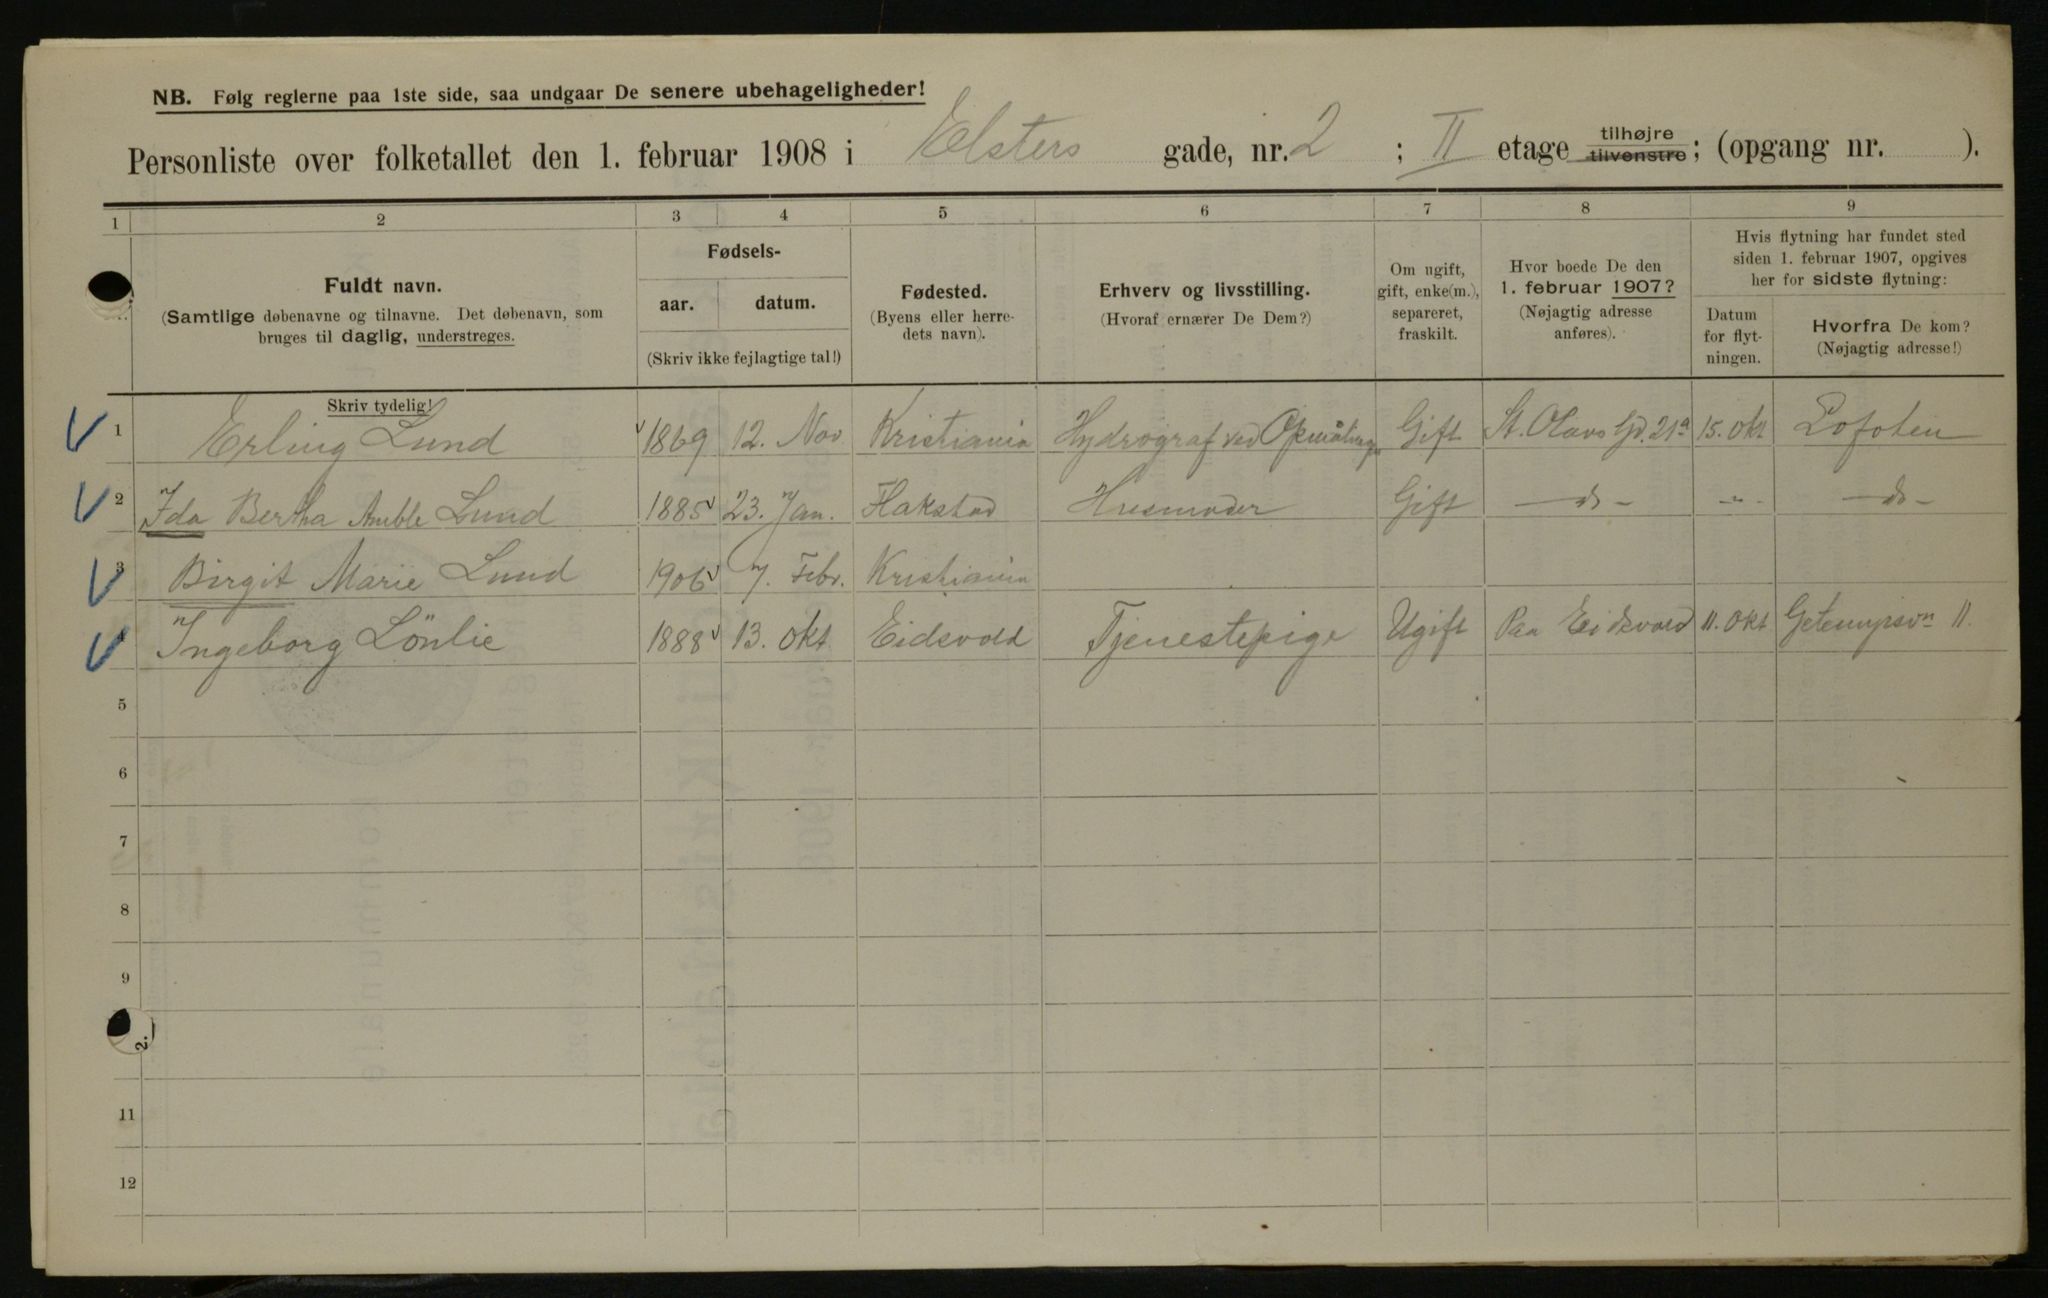 NB. Følg reglerne paa 1ste side, saa undgaar De senere ubehageligheder!
Personliste over folketallet den 1. februar 1908 i Elsters gade, nr. 2 ; II etage tilhøjre tilvenstre; (opgang nr. ).
1 2 3 4 5 6 7 8 9
Fuldt navn.
(Samtlige døbenavne og tilnavne. Det døbenavn, som
bruges til daglig, understreges.
Fødsels-
aar. datum.
(Skriv ikke fejlagtige tal!)
Fødested.
(Byens eller herre-
dets navn).
Erhverv og livsstilling.
(Hvoraf ernærer De Dem?)
Om ugift,
gift, enke(m.),
separeret,
fraskilt.
Hvor boede De den
1. februar 1907?
(Nøjagtig adresse
anføres).
Hvis flytning har fundet sted
siden 1. februar 1907, opgives
her for sidste flytning:
Datum
for flyt-
ningen.
Hvorfra De kom?
(Nøjagtig adresse!)
Skriv tydelig!
1 Erling Lund 1869 12. Nov. Kristiania Hydrograf ved Gift St. Olavs Gd. 21a 15. Okt Lofoten
2 Ida Bertha Amble Lund 1885 23. Jan. Flakstad Husmoder Gift — do — - " - — do —
3 Birgit Marie Lund 1906 7. Febr. Kristiania
4 Ingeborg Lönlie 1888 13. Okt. Eidsvold Tjenestepige Ugift Paa Eidsvold 11. Okt 11.
5
6
7
8
9
2.
11
12